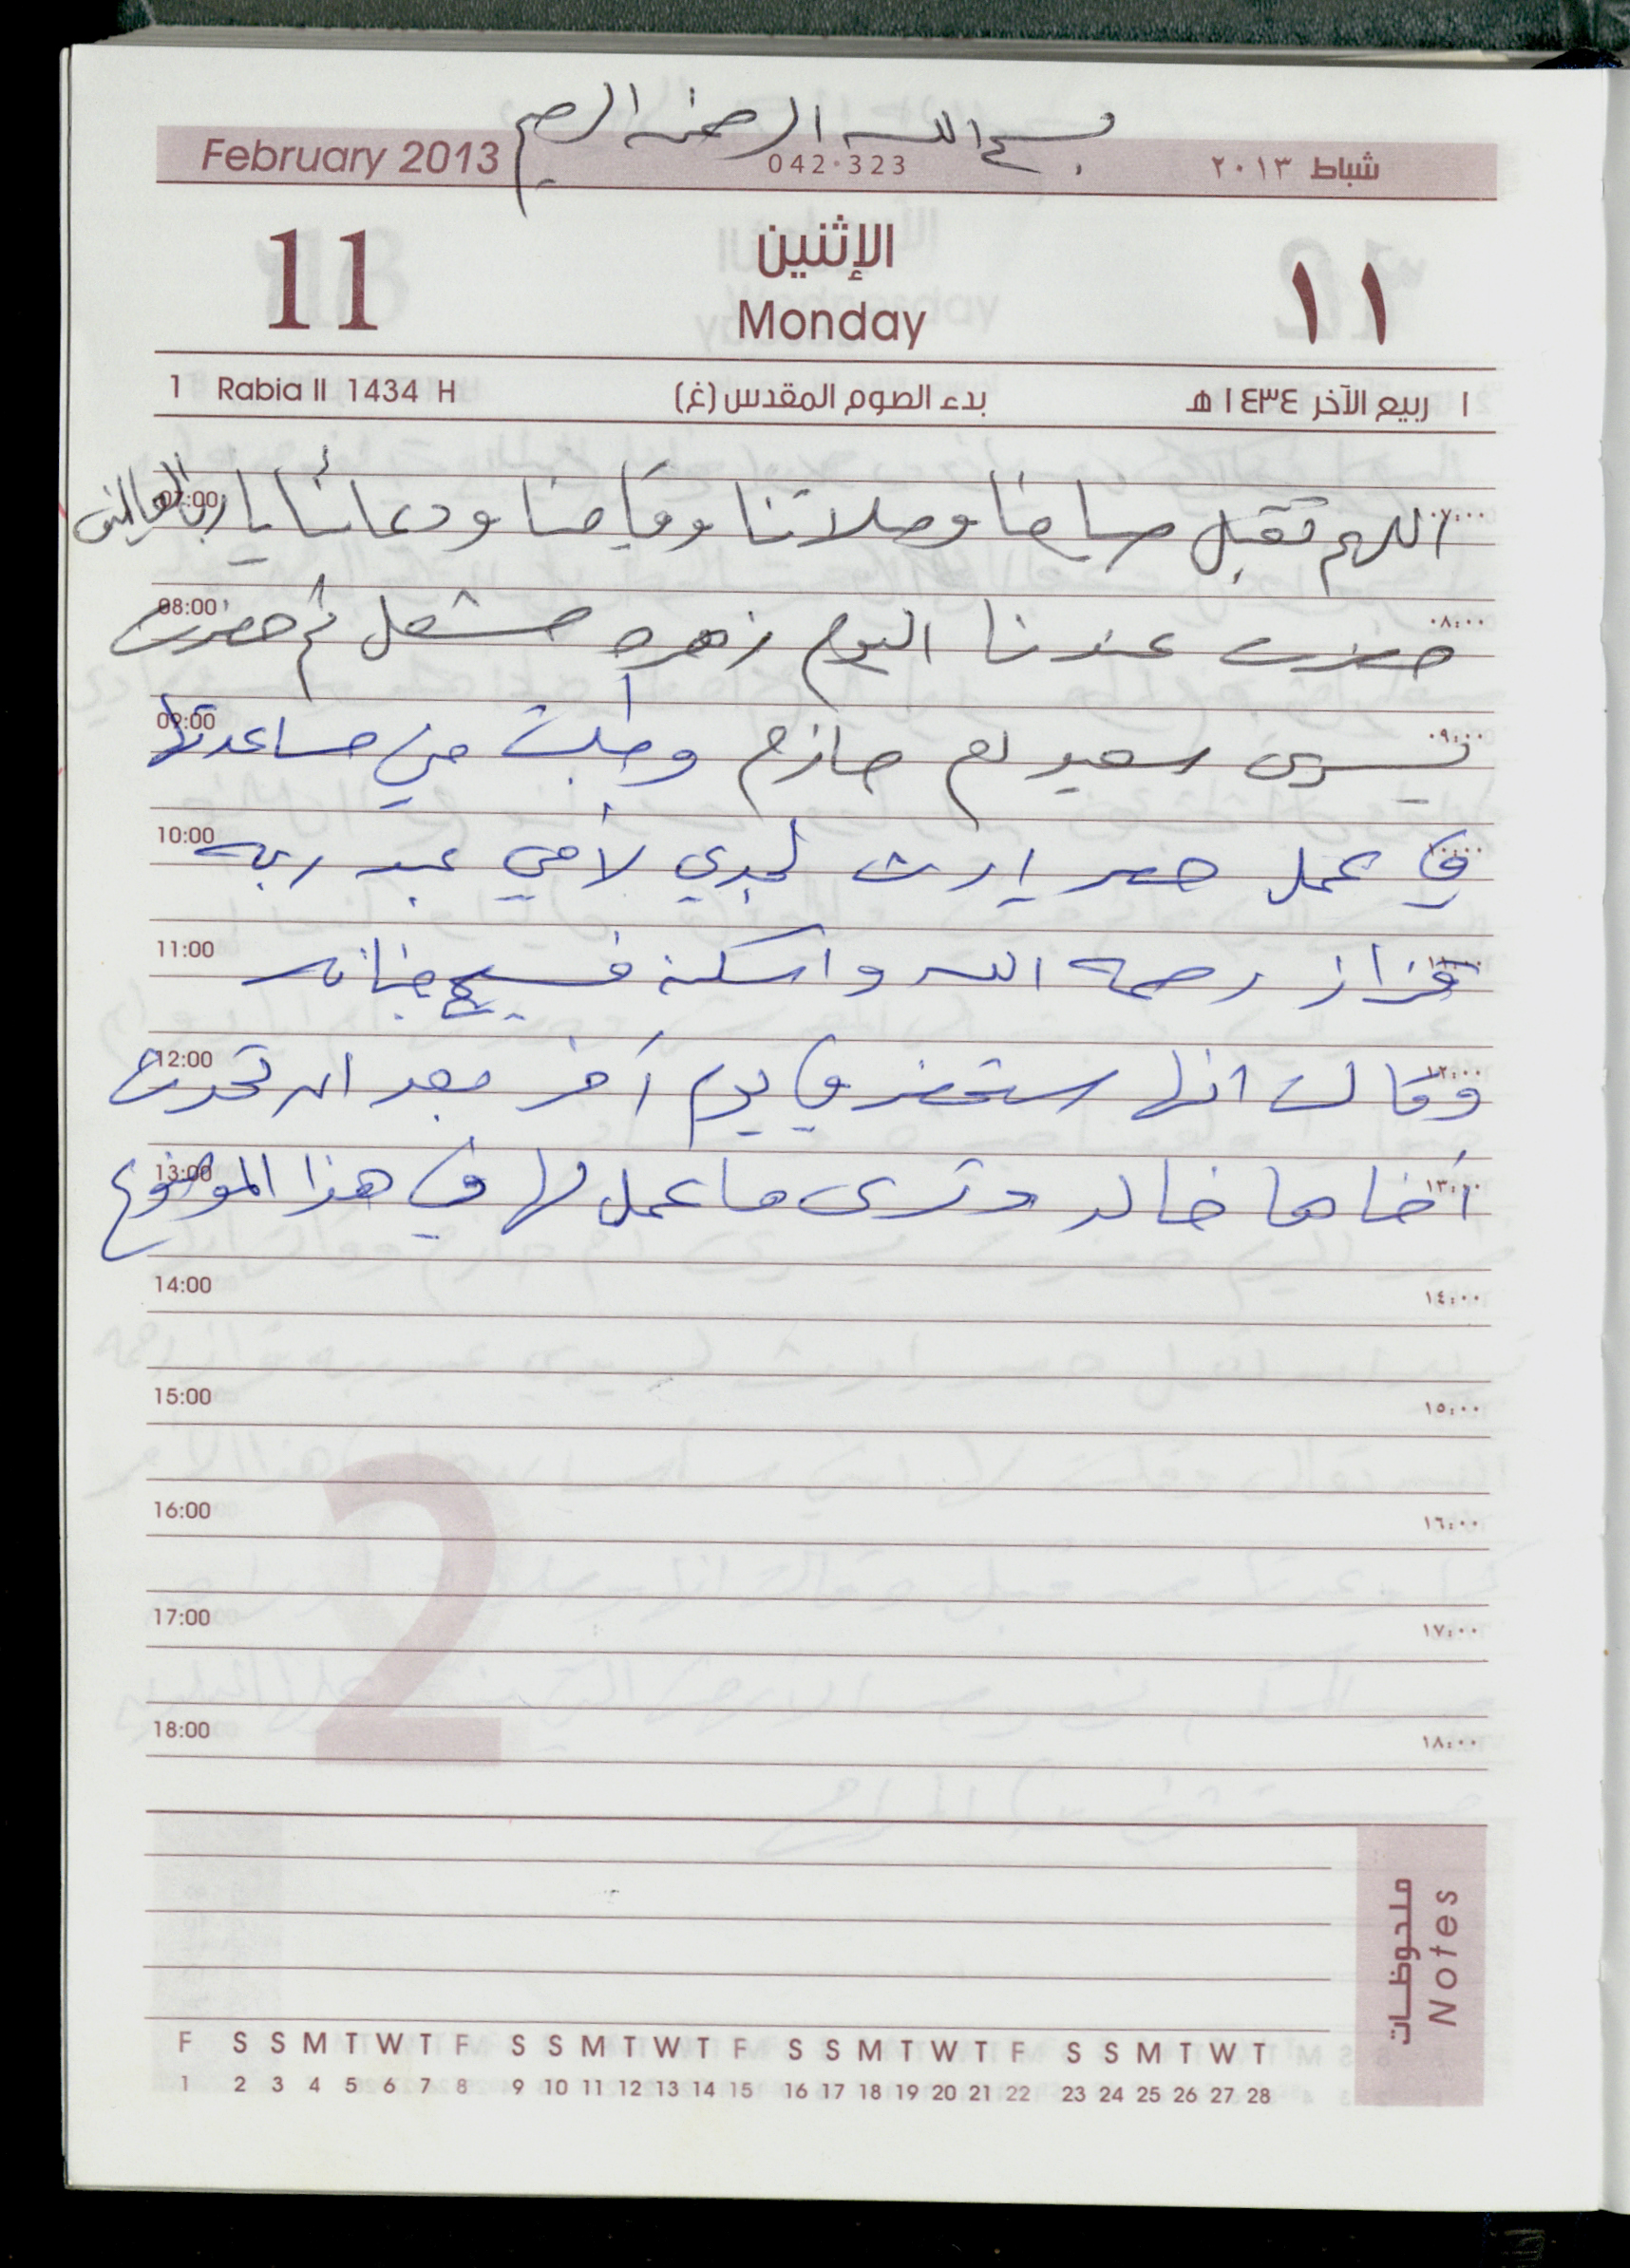 بسم الله الرحمن الرحيم
February 2013 042·323 شباط ٢٠١٣
11 الإثنين ١١
Monday
1 Rabia II 1434 H بدء الصوم المقدس (غ) ١ ربيع الآخر ١٤٣٤ هـ
07:00 اللهم تقبل صيامنا وصلاتنا وقيامنا ودعائنا يا رب العالمين ٠٧:٠٠
08:00 حضرت عندنا اليوم زهره مشعل ثم حضرت ٠٨:٠٠
09:00 يسرى سعيد ام حازم وطلبت مني مساعدتها ٠٩:٠٠
10:00 في عمل حصر إرث لجدي لأمي عبد ربه ١٠:٠٠
11:00 قزاز رحمه الله واسكنه فسيح جنانه ١١:٠٠
12:00 وقالت انها ستحضر في يوم آخر بعد ان تحدث ١٢:٠٠
13:00 أخاها خالد وترى ما عمل لها في هذا الموضوع ١٣:٠٠
14:00 ١٤:٠٠
15:00 ١٥:٠٠
16:00 ١٦:٠٠
17:00 ١٧:٠٠
18:00 ١٨:٠٠
2
ملحوظات
Notes
F S S M T W T F S S M T W T F S S M T W T F S S M T W T
1 2 3 4 5 6 7 8 9 10 11 12 13 14 15 16 17 18 19 20 21 22 23 24 25 26 27 28